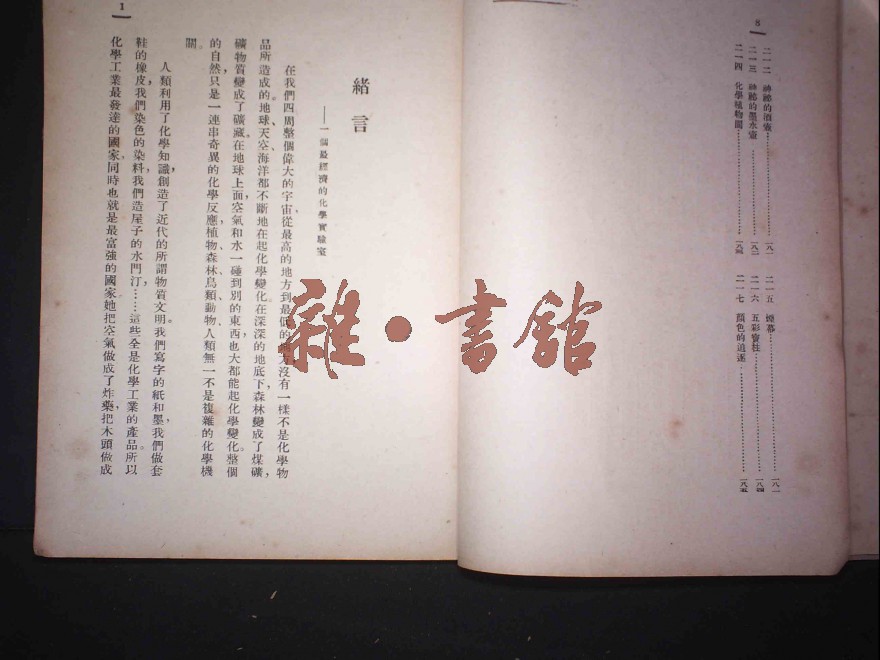 8
二一二 神秘的酒壺……一八一
二一三 神秘的墨水壺……一八二
二一四 化學植物園……一八三
二一五 煙幕……一八一
二一六 五彩寶柱……一八四
二一七 顏色的追逐……一八五
1
緒言
——一個最經濟的化學實驗室
在我們四周整個偉大的宇宙,從最高的地方到最低的地方沒有一樣不是化學物
品所造成的。地球、天空、海洋都不斷地在起化學變化。在深深的地底下,森林變成了煤礦,
礦物質變成了礦藏。在地球上面,空氣和水一碰到別的東西,也大都能起化學變化。整個
的自然只是一連串奇異的化學反應,植物、森林、鳥類、動物、人類無一不是複雜的化學機
關。
人類利用了化學知識,創造了近代的所謂物質文明。我們寫字的紙和墨,我們做套
鞋的橡皮,我們染色的染料,我們造屋子的水門汀,……這些全是化學工業的產品。所以
化學工業最發達的國家,同時也就是最富強的國家。她把空氣做成了炸藥,把木頭做成
雜·書館